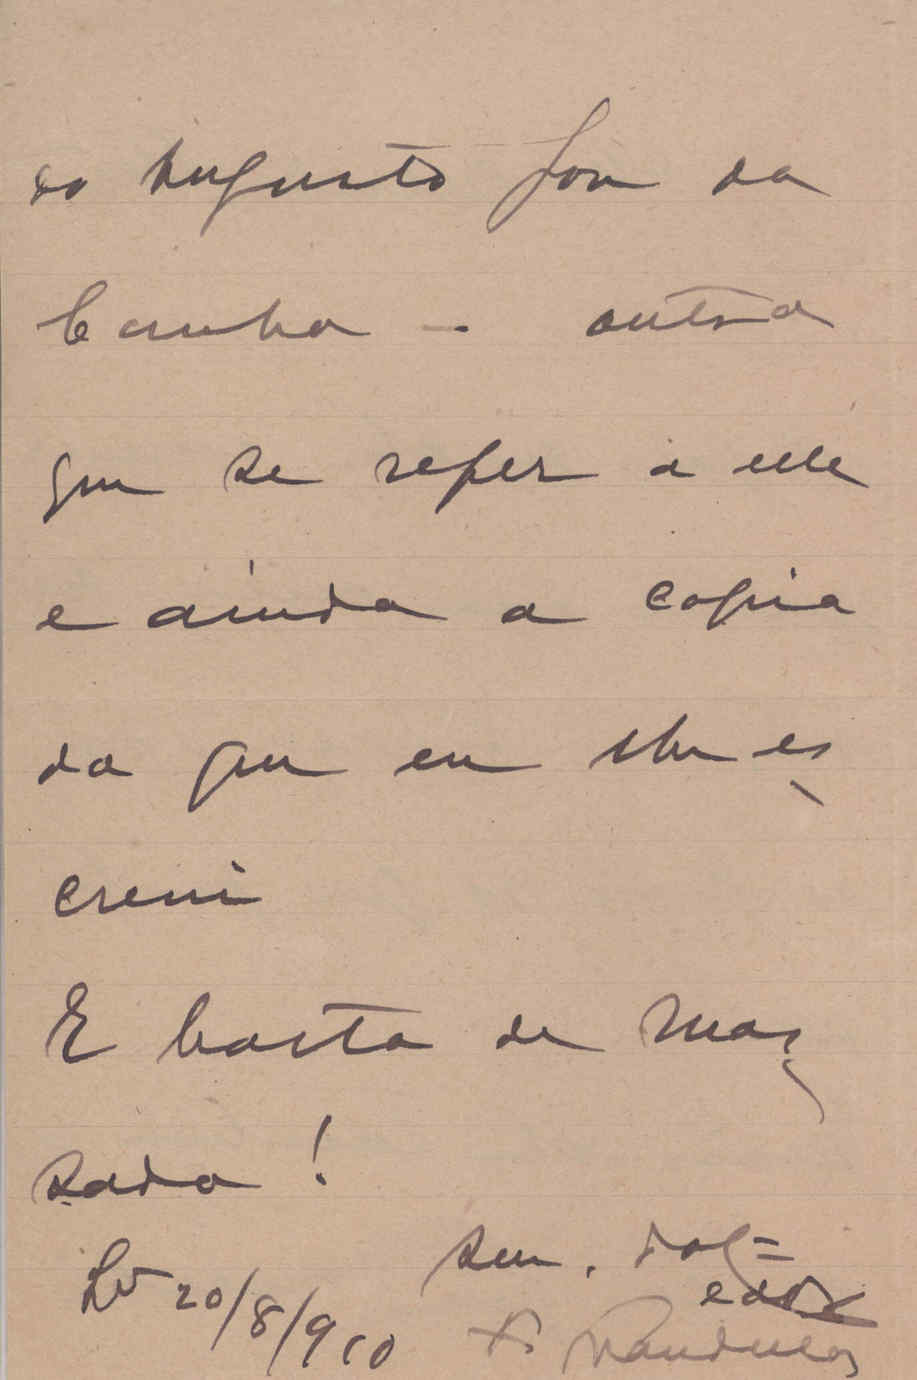 do Augusto José da
Cunha – outra
que se refere a elle
e ainda a copia
da que eu lhe es
crevi
E basta de mas
sada!
Seu. 
Lx 20/8/910